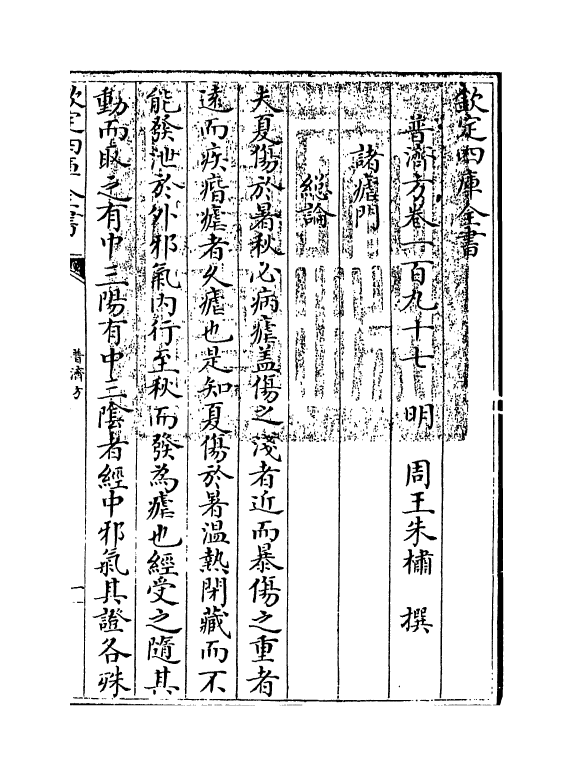 欽定四庫全書
普濟方卷一百九十七　明　周王朱橚　撰
諸瘧門
總論
夫夏傷於暑秋必病瘧盖傷之淺者近而暴傷之重者
遠而痎痎瘧者久瘧也是知夏傷於暑温熱閉藏而不
能發泄於外邪氣内行至秋而發為瘧也經受之隨其
動而取之有中三陽有中三隂者經中邪氣其證各殊
欽定四庫全書
普濟方
一